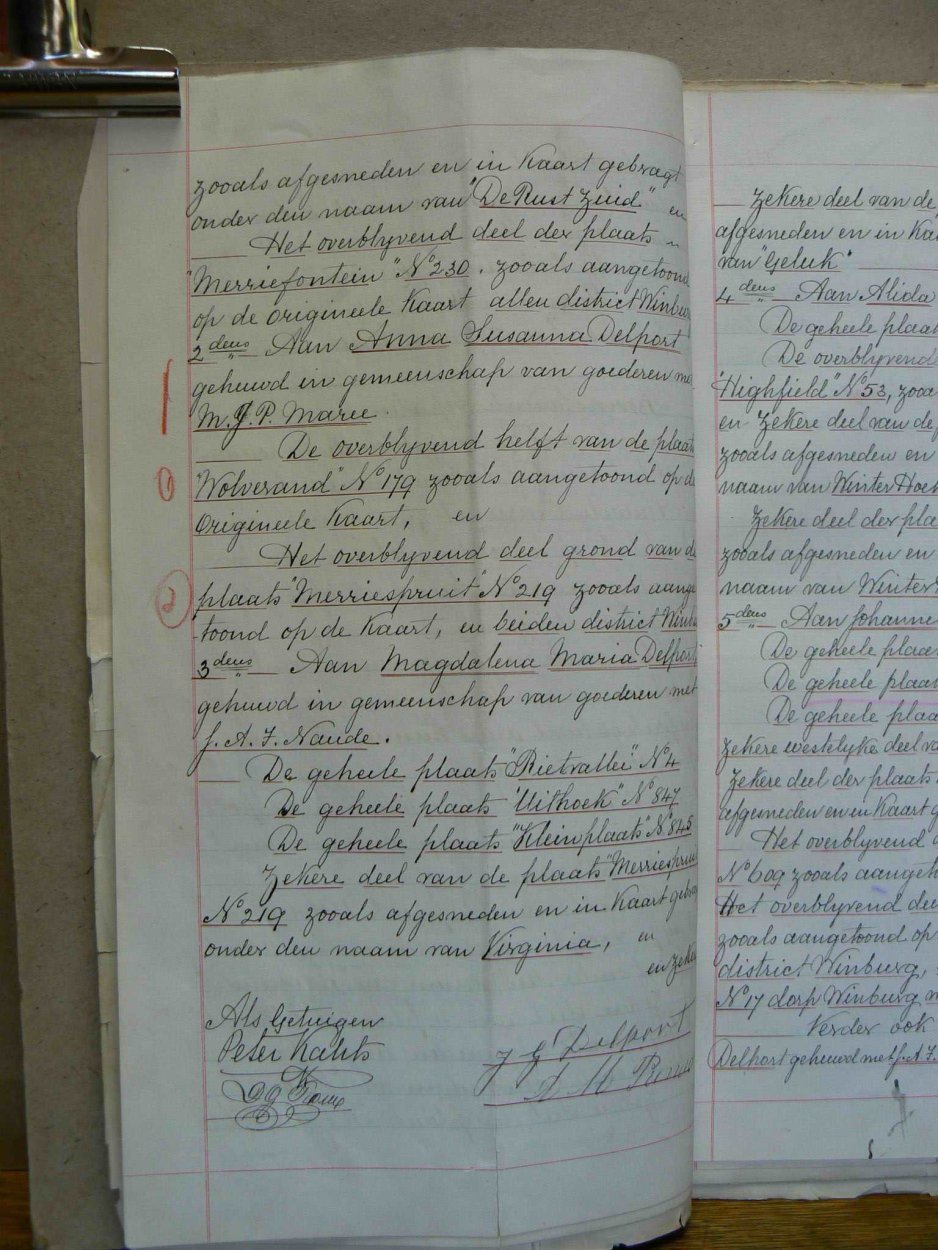 zooals afgesneden en in Kaart gebragt
onder den naam van "De Rust Zuid" en
Het overblyvend deel der plaats
"Merriefontein" No 230. zooals aangetoond
op de origineele Kaart allen district Winburg
2dens Aan Anna Susanna Delport
gehuwd in gemeenschap van goederen met
M. J. P. Maree.
De overblyvend helft van de plaats
"Wolverand" No 179 zooals aangetoond op de
Origineele Kaart, en
Het overblyvend deel grond van de
plaats "Merriespruit" No 219 zooals aange-
toond op de Kaart, en beiden district Winb
3dens Aan Magdalena Maria Delport,
gehuwd in gemeenschap van goederen met
J. A. J. Naude.
De geheele plaats "Rietvallei" No 4
De geheele plaats "Uithoek" No 847
De geheele plaats "Kleinplaats" No 845
Zekere deel van de plaats "Merriespruit
No 219 zooals afgesneden en in Kaart gebra
onder den naam van Virginia, en
en zeke
Als Getuigen
Peter
J J Delport
Zekere deel van de
afgesneden en in Kaa
van "Geluk"
4dens Aan Alida
De geheele plaat
De overblyvend
"Highfield" No 53, zooa
en Zekere deel van de p
zooals afgesneden en
naam van Winter Hoek
Zekere deel der pla
zooals afgesneden en
naam van Winter
5dens Aan Johanne
De geheele plaa
De geheele plaat
De geheele plaa
Zekere westelyke deel va
Zekere deel der plaats
afgesneden en in Kaart g
Het overblyvend d
No 609 zooals aangeto
Het overblyvend dee
zooals aangetoond op
district Winburg,
No 17 dorp Winburg
Verder ook
Delport gehuwd met J. A. J.